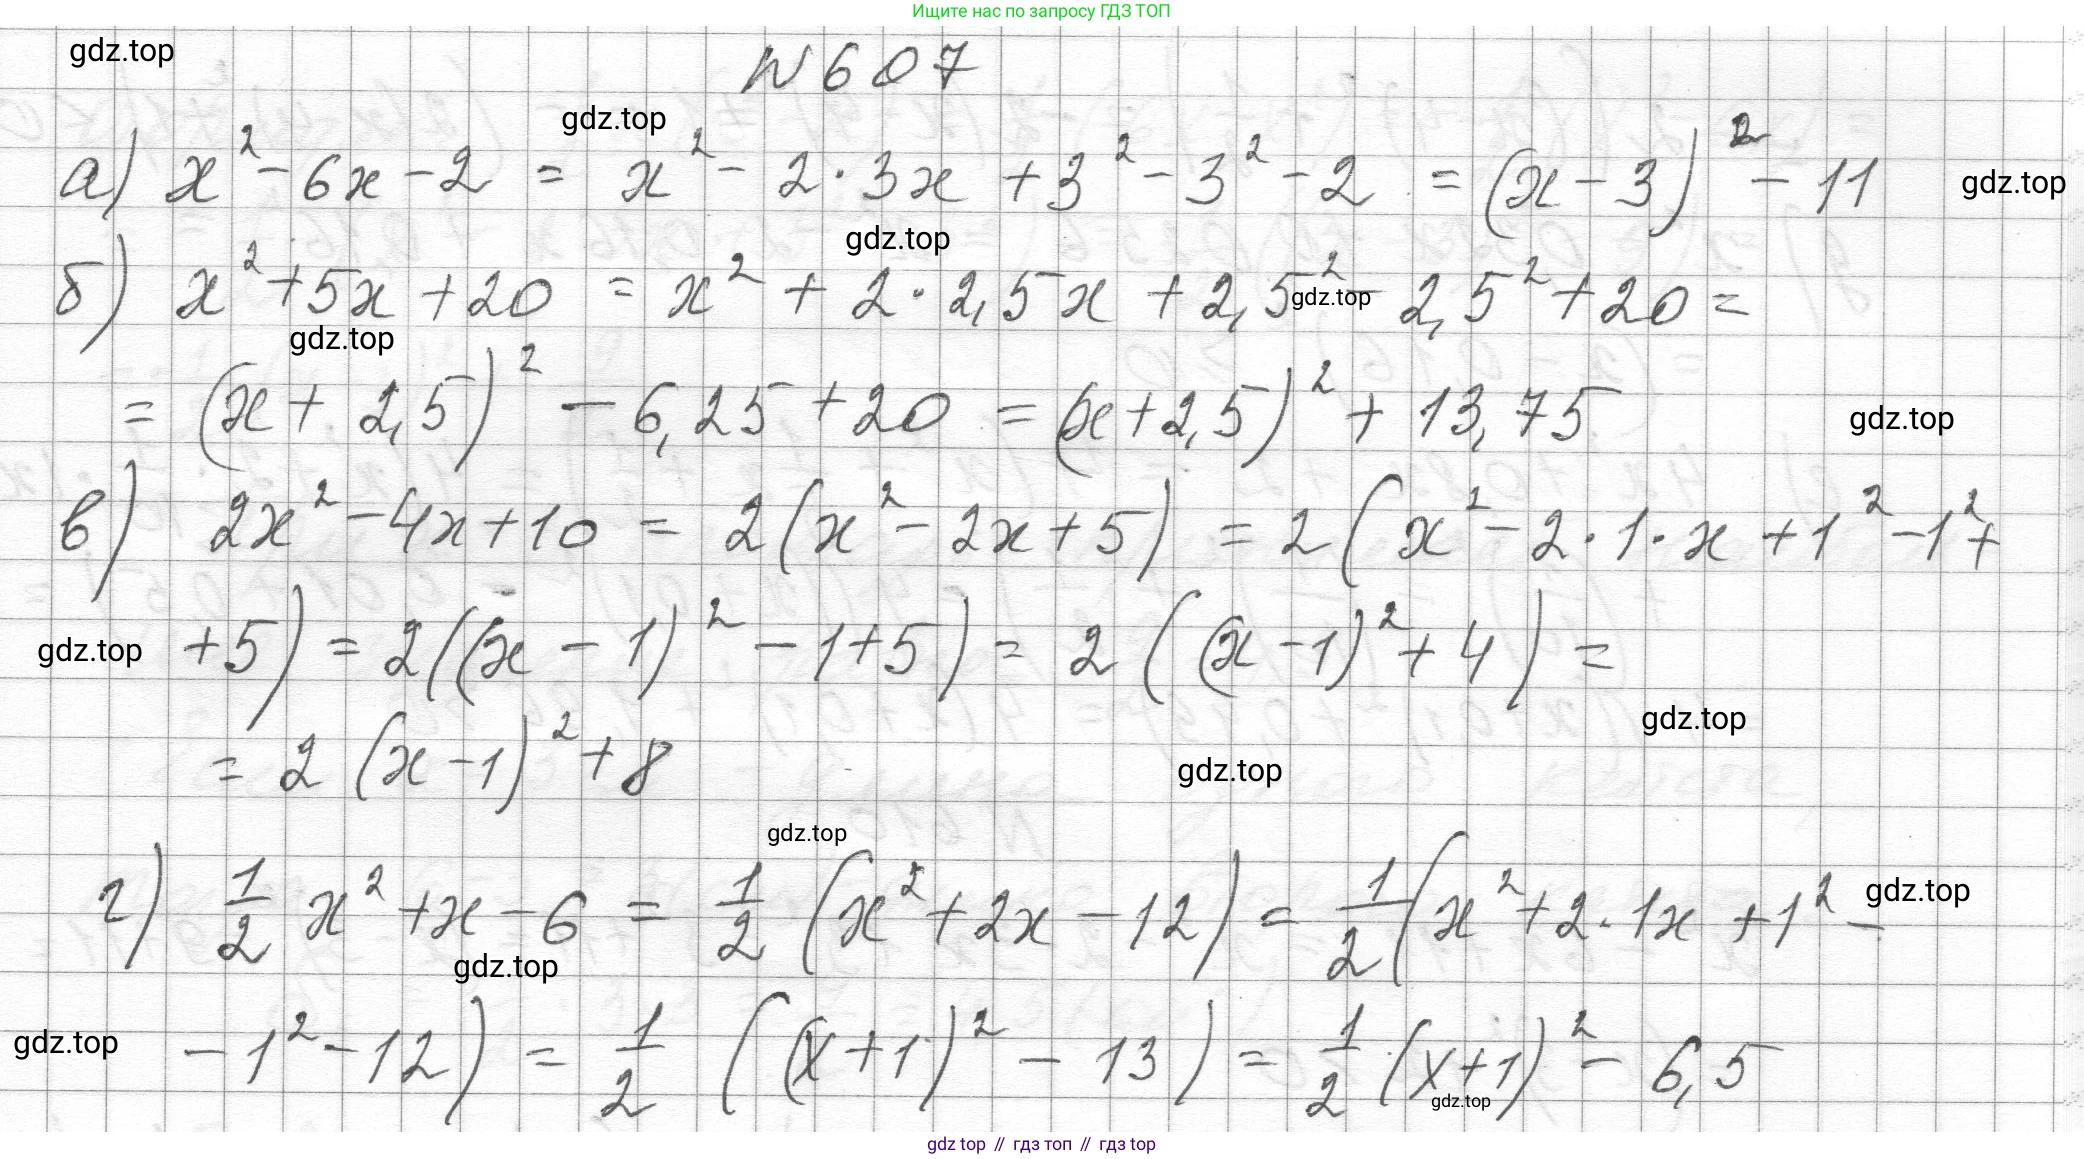 Ищите нас по запросу ГДЗ ТОП
gdz.top
N 607
gdz.top
а) x² - 6x - 2 = x² - 2·3x + 3² - 3² - 2 = (x - 3)² - 11
gdz.top
gdz.top
б) x² + 5x + 20 = x² + 2·2,5x + 2,5² - 2,5² + 20 =
gdz.top
gdz.top
= (x + 2,5)² - 6,25 + 20 = (x + 2,5)² + 13,75
gdz.top
в) 2x² - 4x + 10 = 2(x² - 2x + 5) = 2(x² - 2·1·x + 1² - 1² +
gdz.top
+ 5) = 2((x - 1)² - 1 + 5) = 2((x - 1)² + 4) =
gdz.top
= 2(x - 1)² + 8
gdz.top
gdz.top
г) 1/2 x² + x - 6 = 1/2 (x² + 2x - 12) = 1/2 (x² + 2·1x + 1² -
gdz.top
gdz.top
gdz.top
- 1² - 12) = 1/2 ((x + 1)² - 13) = 1/2 (x + 1)² - 6,5
gdz.top
gdz top // гдз топ // гдз top